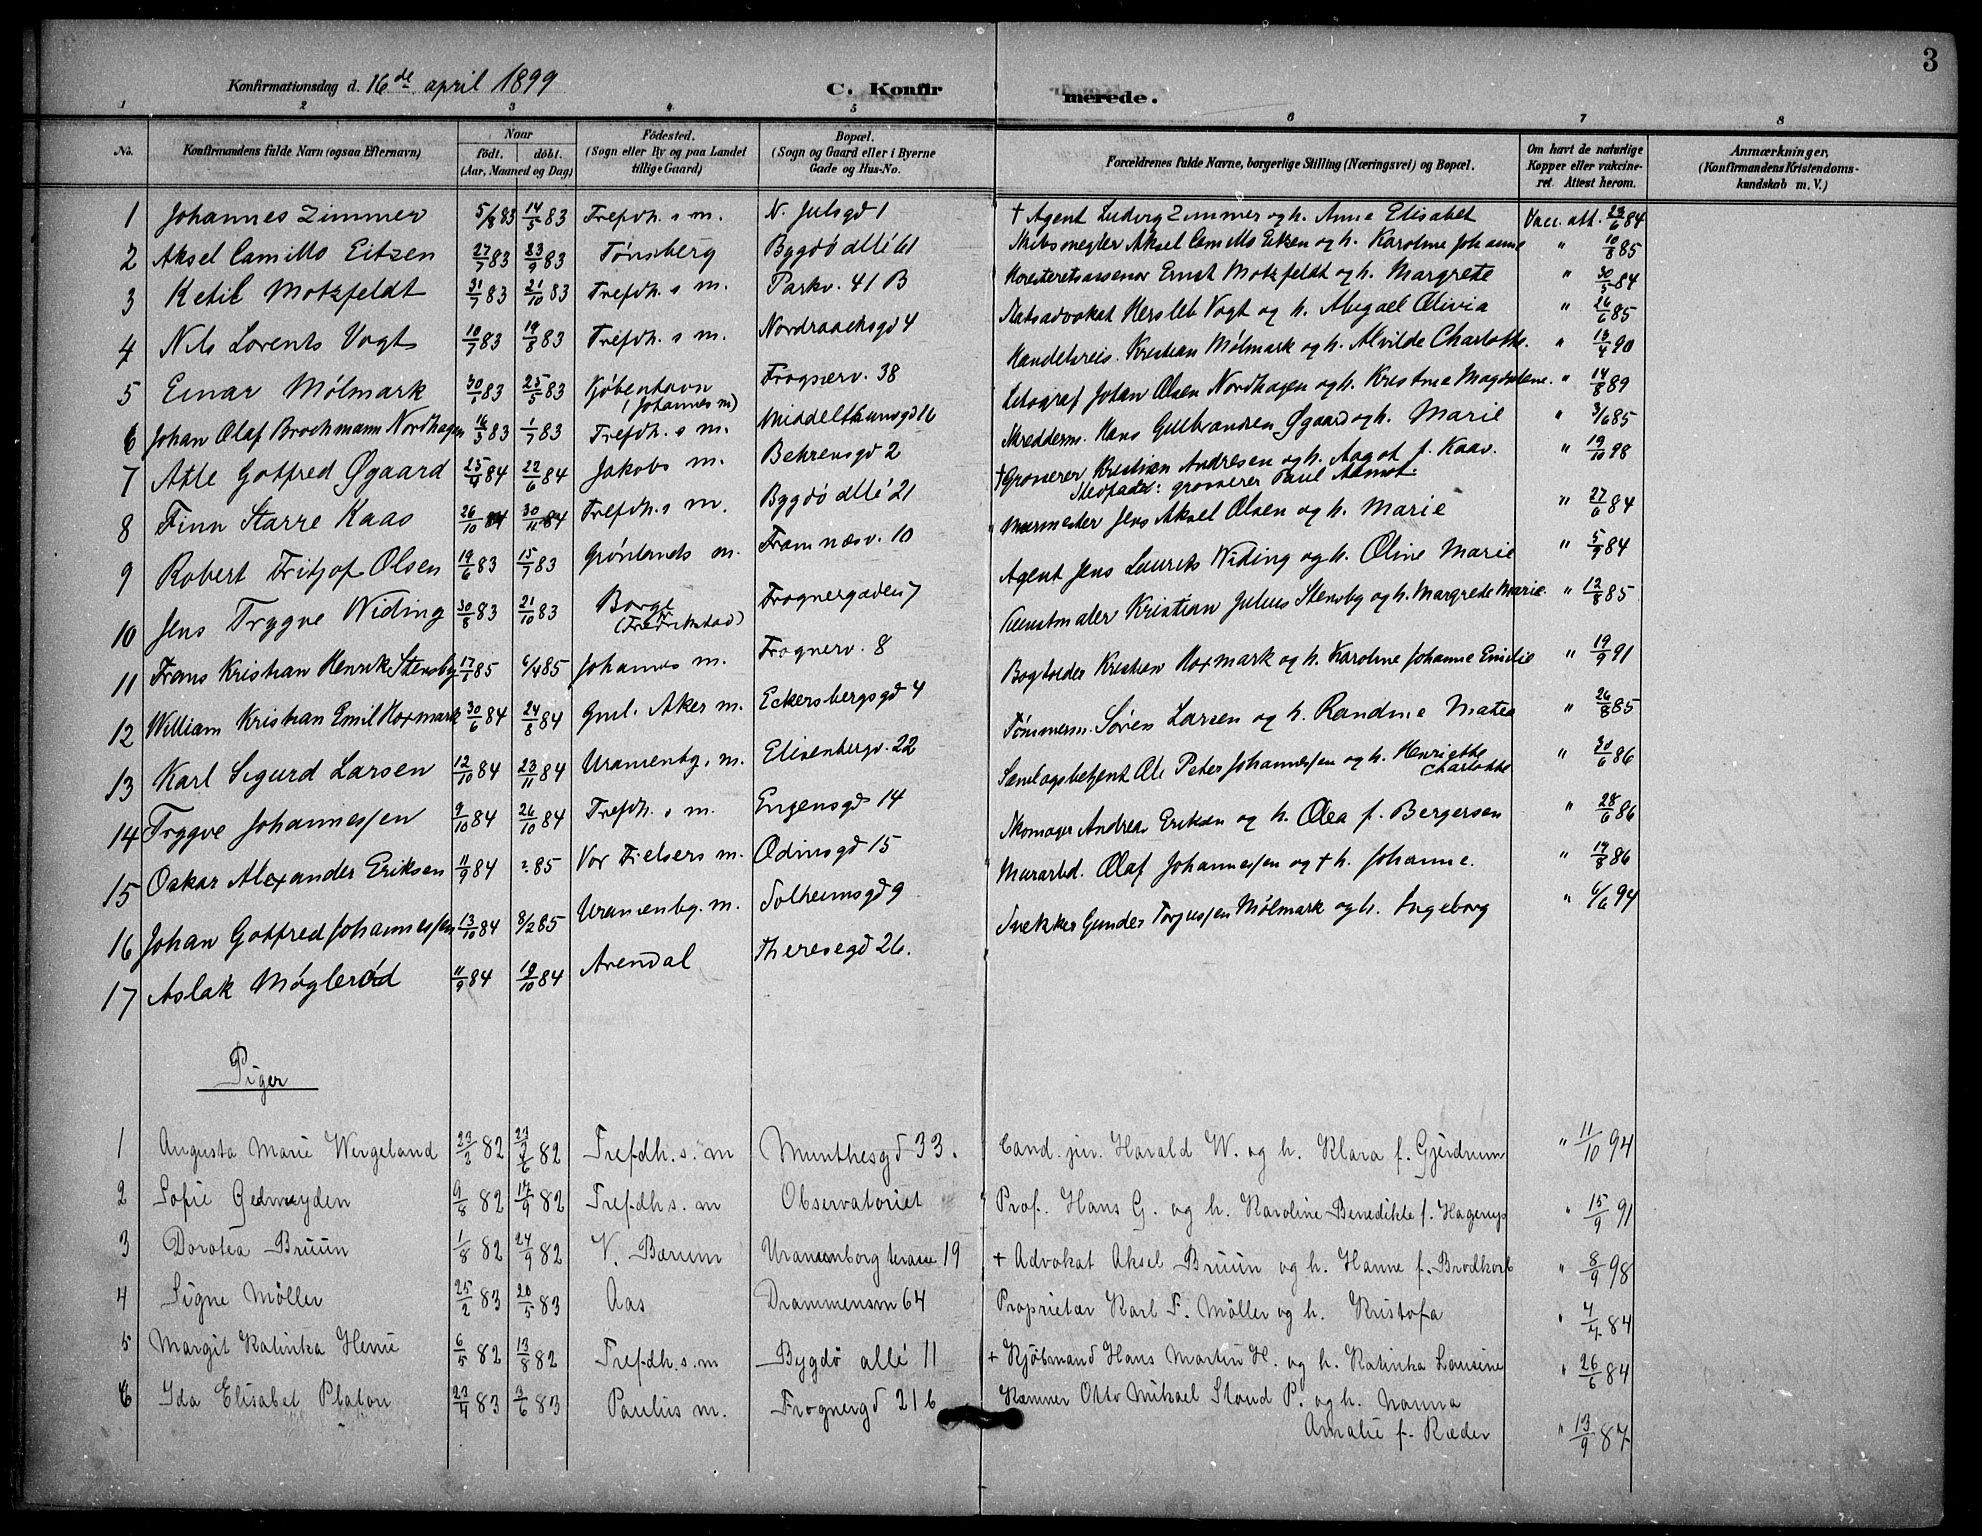 3
Konfirmationsdag d. 16de april 1899
C. Konfirmerede.
1 2 3 4 5 6 7 8
No.
Konfirmandens fulde Navn (ogsaa Efternavn)
Naar
født. døbt.
(Aar, Maaned og Dag)
Fødested.
(Sogn eller By og paa Landet
tillige Gaard)
Bopæl.
(Sogn og Gaard eller i Byerne
Gade og Hus-No.
Forældrenes fulde Navne, borgerlige Stilling (Næringsvei) og Bopæl.
Om havt de naturlige
Kopper eller vakcine-
ret. Attest herom.
Anmærkninger,
(Konfirmandens Kristendoms-
kundskab m. V.)
1 Johannes Zimmer 5/3 83 14/5 83 Trefdh. s m. N. Julsgd 1 † Agent Ludvig Zimmer og h. Anne Elisabet Vacc. att. 23/6 84
2 Aksel Camillo Eitzen 27/7 83 23/9 83 Tønsberg Bygdø allé 61 Skibsmegler Aksel Camillo Eitzen og h. Karoline Johanne " 10/8 85
3 Ketil Motzfeldt 31/7 83 21/10 83 Trefdh. s m. Parkv. 41 B Høiesteretsassessor Ernst Motzfeldt og h. Margrete " 30/5 84
4 Nils Lorents Vogt 10/7 83 19/8 83 Trefdh. s m. Nordraachsgd 4 Statsadvokat Hersleb Vogt og h. Abigael Olivia " 26/6 85
5 Einar Mølmark 30/1 83 25/5 83 Kjøbenhavn (Johannes m) Frognerv. 38 Handelsreis. Kristian Mølmark og h. Alvilde Charlotte. " 13/4 90
6 Johan Olaf Brochmann Nordhagen 16/3 83 1/7 83 Trefdh. s m. Middelthunsgd 16 Litograf Johan Olsen Nordhagen og h. Kristine Magdalene. " 14/8 89
7 Atle Gotfred Øgaard 25/4 84 22/6 84 Jakobs m. Behrensgd 2 Skrædderm. Hans Gulbrandsen Øgaard og h. Marie " 3/6 85
8 Finn Starre Kaas 26/10 84 30/11 84 Trefdh. s m. Bygdø allé 21 † Grosserer Kristian Andresen og h. Aagot f. Kaas. " 19/10 98
Stedfader: grosserer Paul
9 Robert Fritjof Olsen 19/6 83 15/7 83 Grønlands m. Framnæsv. 10 Murmester Jens Aksel Olsen og h. Marie " 27/6 84
10 Jens Trygve Widing 30/8 83 21/10 83 Borge (Fredrikstad) Frognergaden 7 Agent Jens Laurits Widing og h. Oline Marie " 5/9 84
11 Frans Kristian Henrik Stensby 17/1 85 6/4 85 Johannes m. Frognerv. 8 Kunstmaler Kristian Julius Stensby og h. Margrede Marie. " 12/8 85
12 William Kristian Emil Hoxmark 30/6 84 24/8 84 Gml. Aker m. Eckersbergsgd 4 Bogholder Kristian Hoxmark og h. Karoline Johanne Emilie " 19/9 91
13 Karl Sigurd Larsen 12/10 84 23/11 84 Uranienbg. m. Elisenbergv. 22 Tømmerm. Søren Larsen og h. Randine Matea " 26/8 85
14 Trygve Johannessen 9/10 84 26/10 84 Trefdh. s m. Eugensgd 14 Peter Johannessen og h. Henriette Charlotte " 30/6 86
15 Oskar Alexander Eriksen 11/9 84 ? 85 Vor Frelsers m. Odinsgd 15 Skomager Andreas Eriksen og h. Olea f. Bergersen " 28/6 86
16 Johan Gotfred Johannessen 13/10 84 8/2 85 Uranienbg. m. Solheimsgd 9 Murarbd. Olaf Johannessen og † h. Johanne. " 19/8 86
17 Aslak Møglerød 11/9 84 19/10 84 Arendal Theresegd 26. Snekker Gunder Torjussen Mølmark og h. Ingeborg " 6/6 94
Piger
1 Augusta Marie Wergeland 23/2 82 82 Trefdh. s. m Munthesgd 33. Cand. jur. Harald W. og h. Klara f. Gjerdrum " 11/10 94
2 Sofie Geelmuyden 9/8 82 17/9 82 Trefdh s. m Observatoriet Prof. Hans G. og h. Karoline Benedikte f. Hagerup " 15/9 91
3 Dorotea Bruun 1/8 82 24/9 82 V. Bærum Uranienborg terasse 19 † Advokat Aksel Bruun og h. Hanne f. Brodkorb " 8/9 98
4 Signe Möller 25/2 83 20/5 83 Aas Drammensvn 64 Proprietær Karl F. Möller og h. Kristofa " 4/4 84
5 Margit Katinka Henie 6/5 82 13/8 82 Trefdh. s. m Bygdø allé 11 † Kjøbmand Hans Martin H. og h. Katinka Lousine " 26/6 84
6 Ida Elisabet Platou 23/4 83 3/6 83 Paulus m. Frognergd 21 b Kæmner Otto Mikael Stand P. og h. Nanna
Amalie f. Ræder " 13/9 87